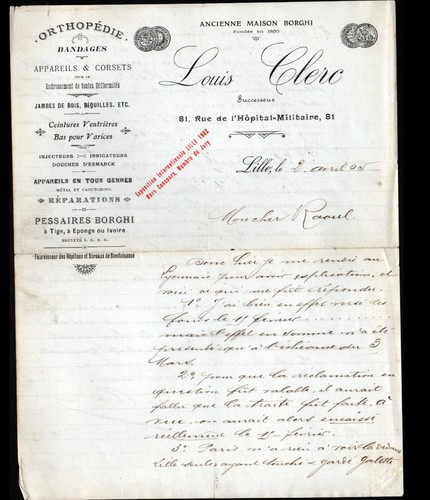 ORTHOPÉDIE
BANDAGES
APPAREILS & CORSETS
POUR LE
Redressement de toutes Difformités
JAMBES DE BOIS, BÉQUILLES, ETC.
Ceintures Ventrières
Bas pour Varices
INJECTEURS IRRIGATEURS
DOUCHES D'ESMARCK
APPAREILS EN TOUS GENRES
MÉTAL ET CAOUTCHOUC
RÉPARATIONS
PESSAIRES BORGHI
à Tige, à Eponge ou Ivoire
BREVETÉ S. G. D. G.
Fournisseur des Hôpitaux et Bureaux de Bienfaisance
ANCIENNE MAISON BORGHI
Fondée en 1850
Louis Clerc
Successeur
81, Rue de l'Hôpital-Militaire, 81
Exposition Internationale LILLE 1902
Hors Concours, Membre du Jury
Lille, le 2 avril 05
Mon cher Raoul
Donc hier je me rendis au
Lyonnais pour avoir explication, et
voici ce qui me fut répondu.
1° J'ai bien en effet versé des
fonds le 15 février
mais l'effet en somme n'a été
présenté qu'à l'échéance du 3
Mars.
2° pour que la réclamation en
question fut valable, il aurait
fallu que la traite fut faite à
vue, on aurait alors encaissé
réellement le 15 février.
3° Paris n'a rien à voir là-dedans
Lille seule ayant touché & gardé galette